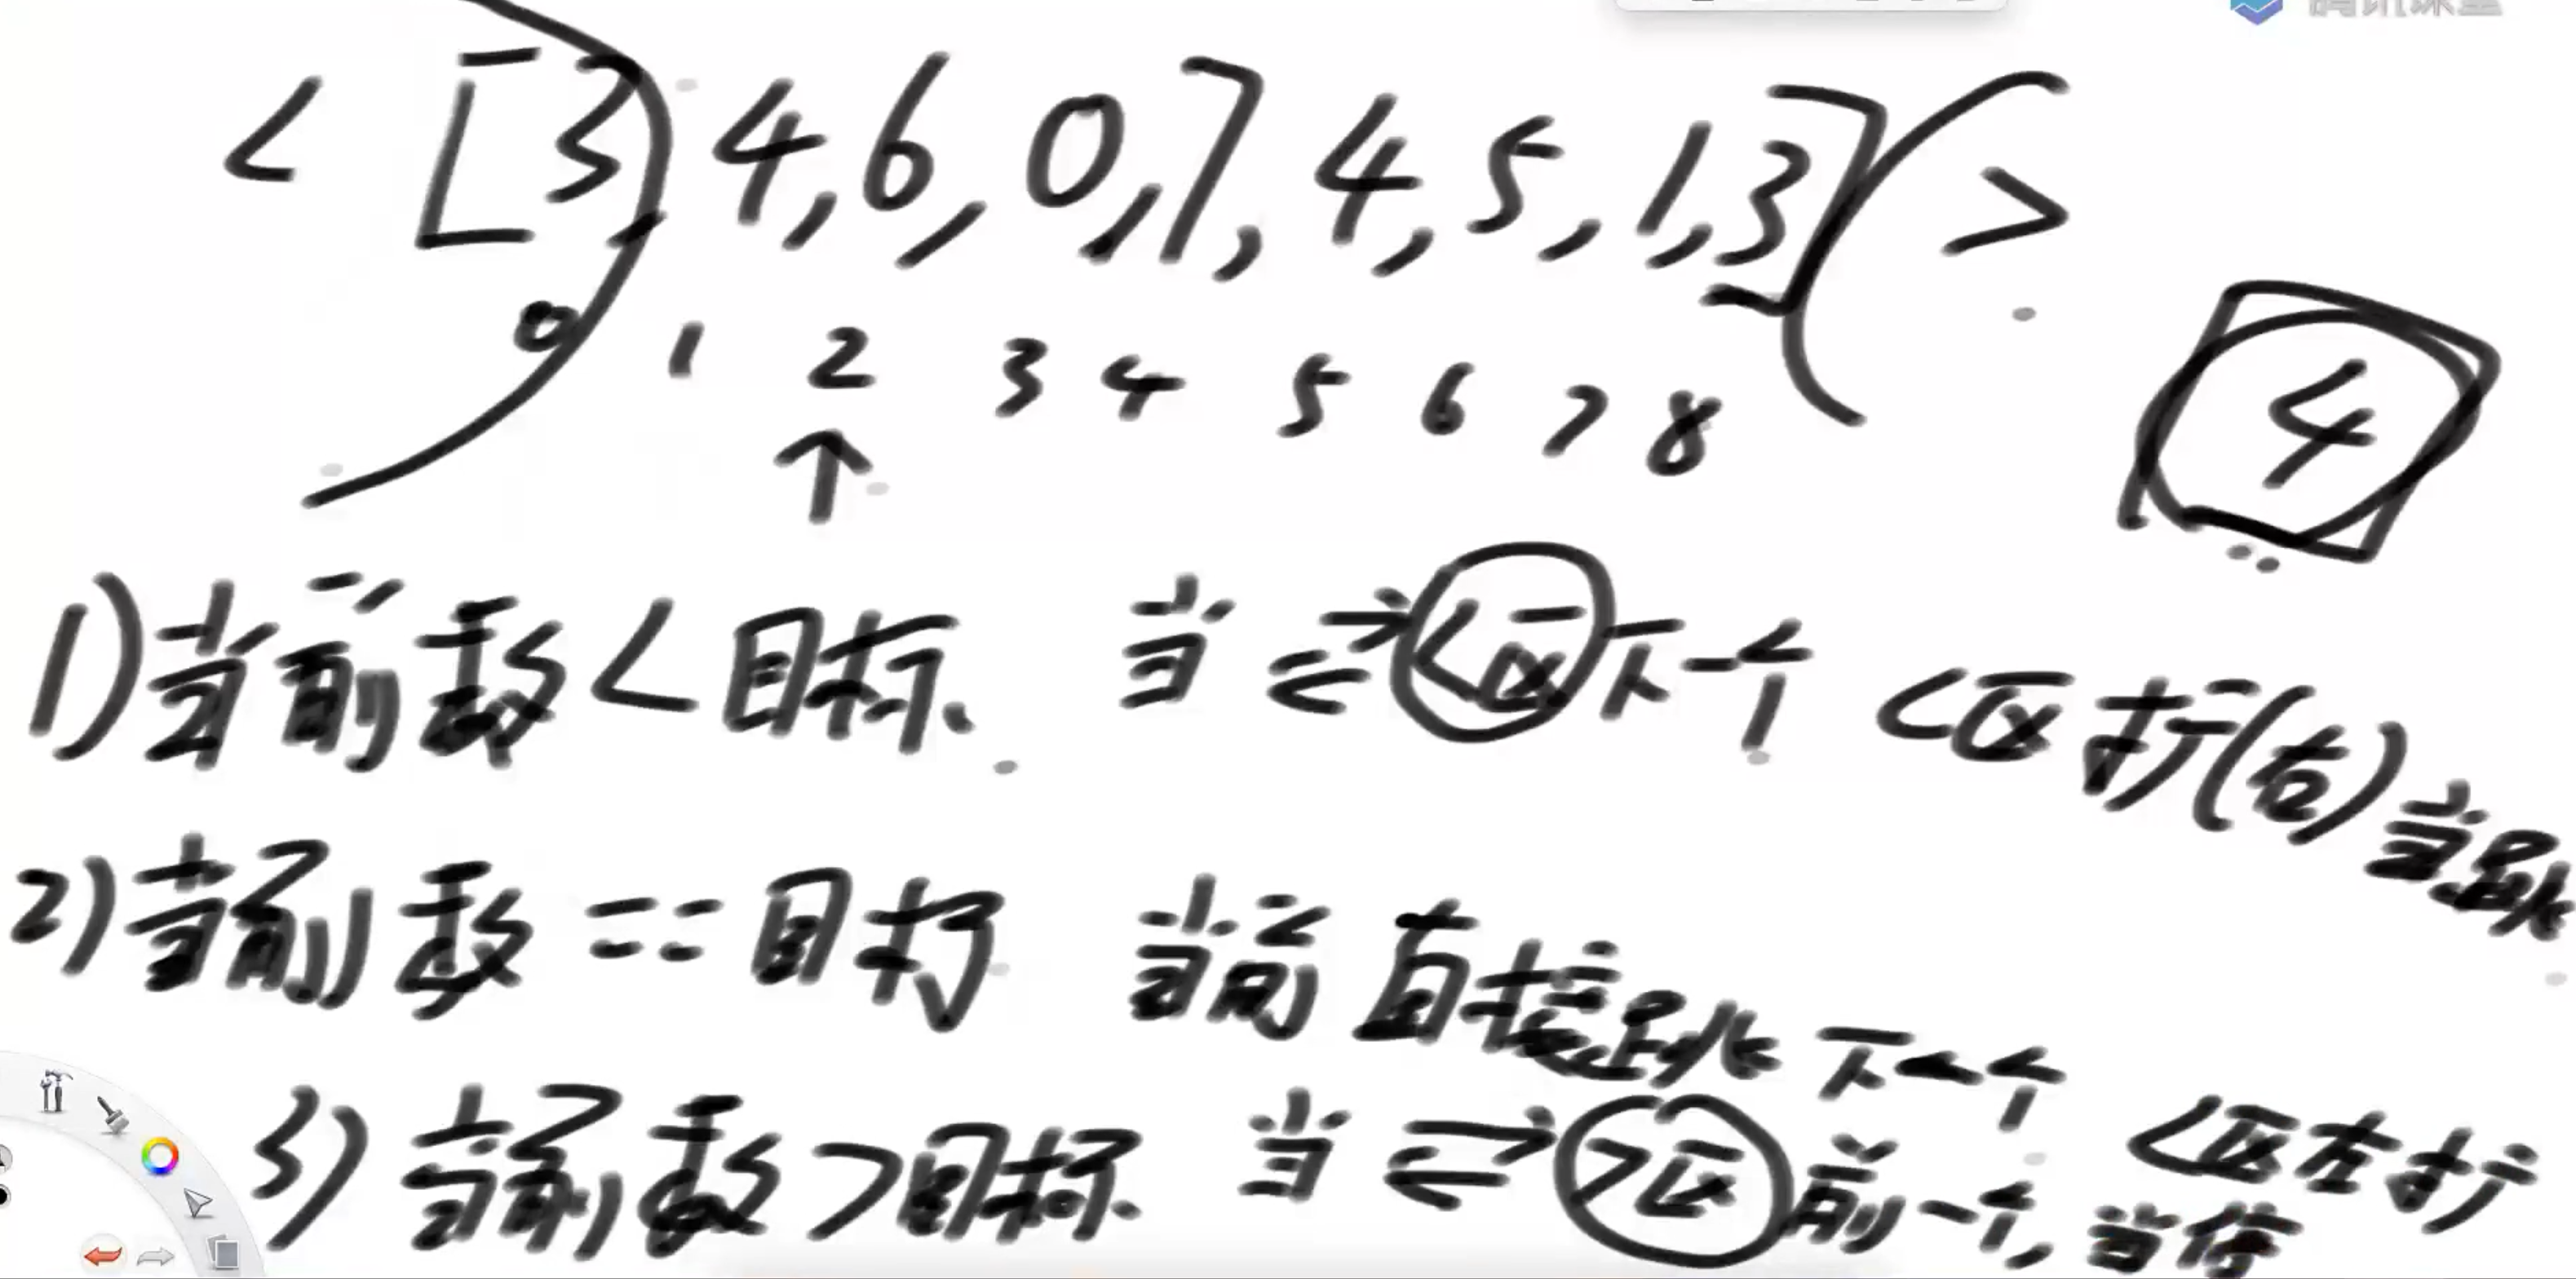 腾讯课堂
< [3) 4,6,0,7,4,5,1,3] ( >
0 1 2 3 4 5 6 7 8
↑
4
1)当前数<目标 当 ⇄ <区下一个 <区扩(右)当跳
2)当前数==目标 当前直接跳下一个
3)当前数>目标 当 ⇄ >区前一个, <区左扩
当停